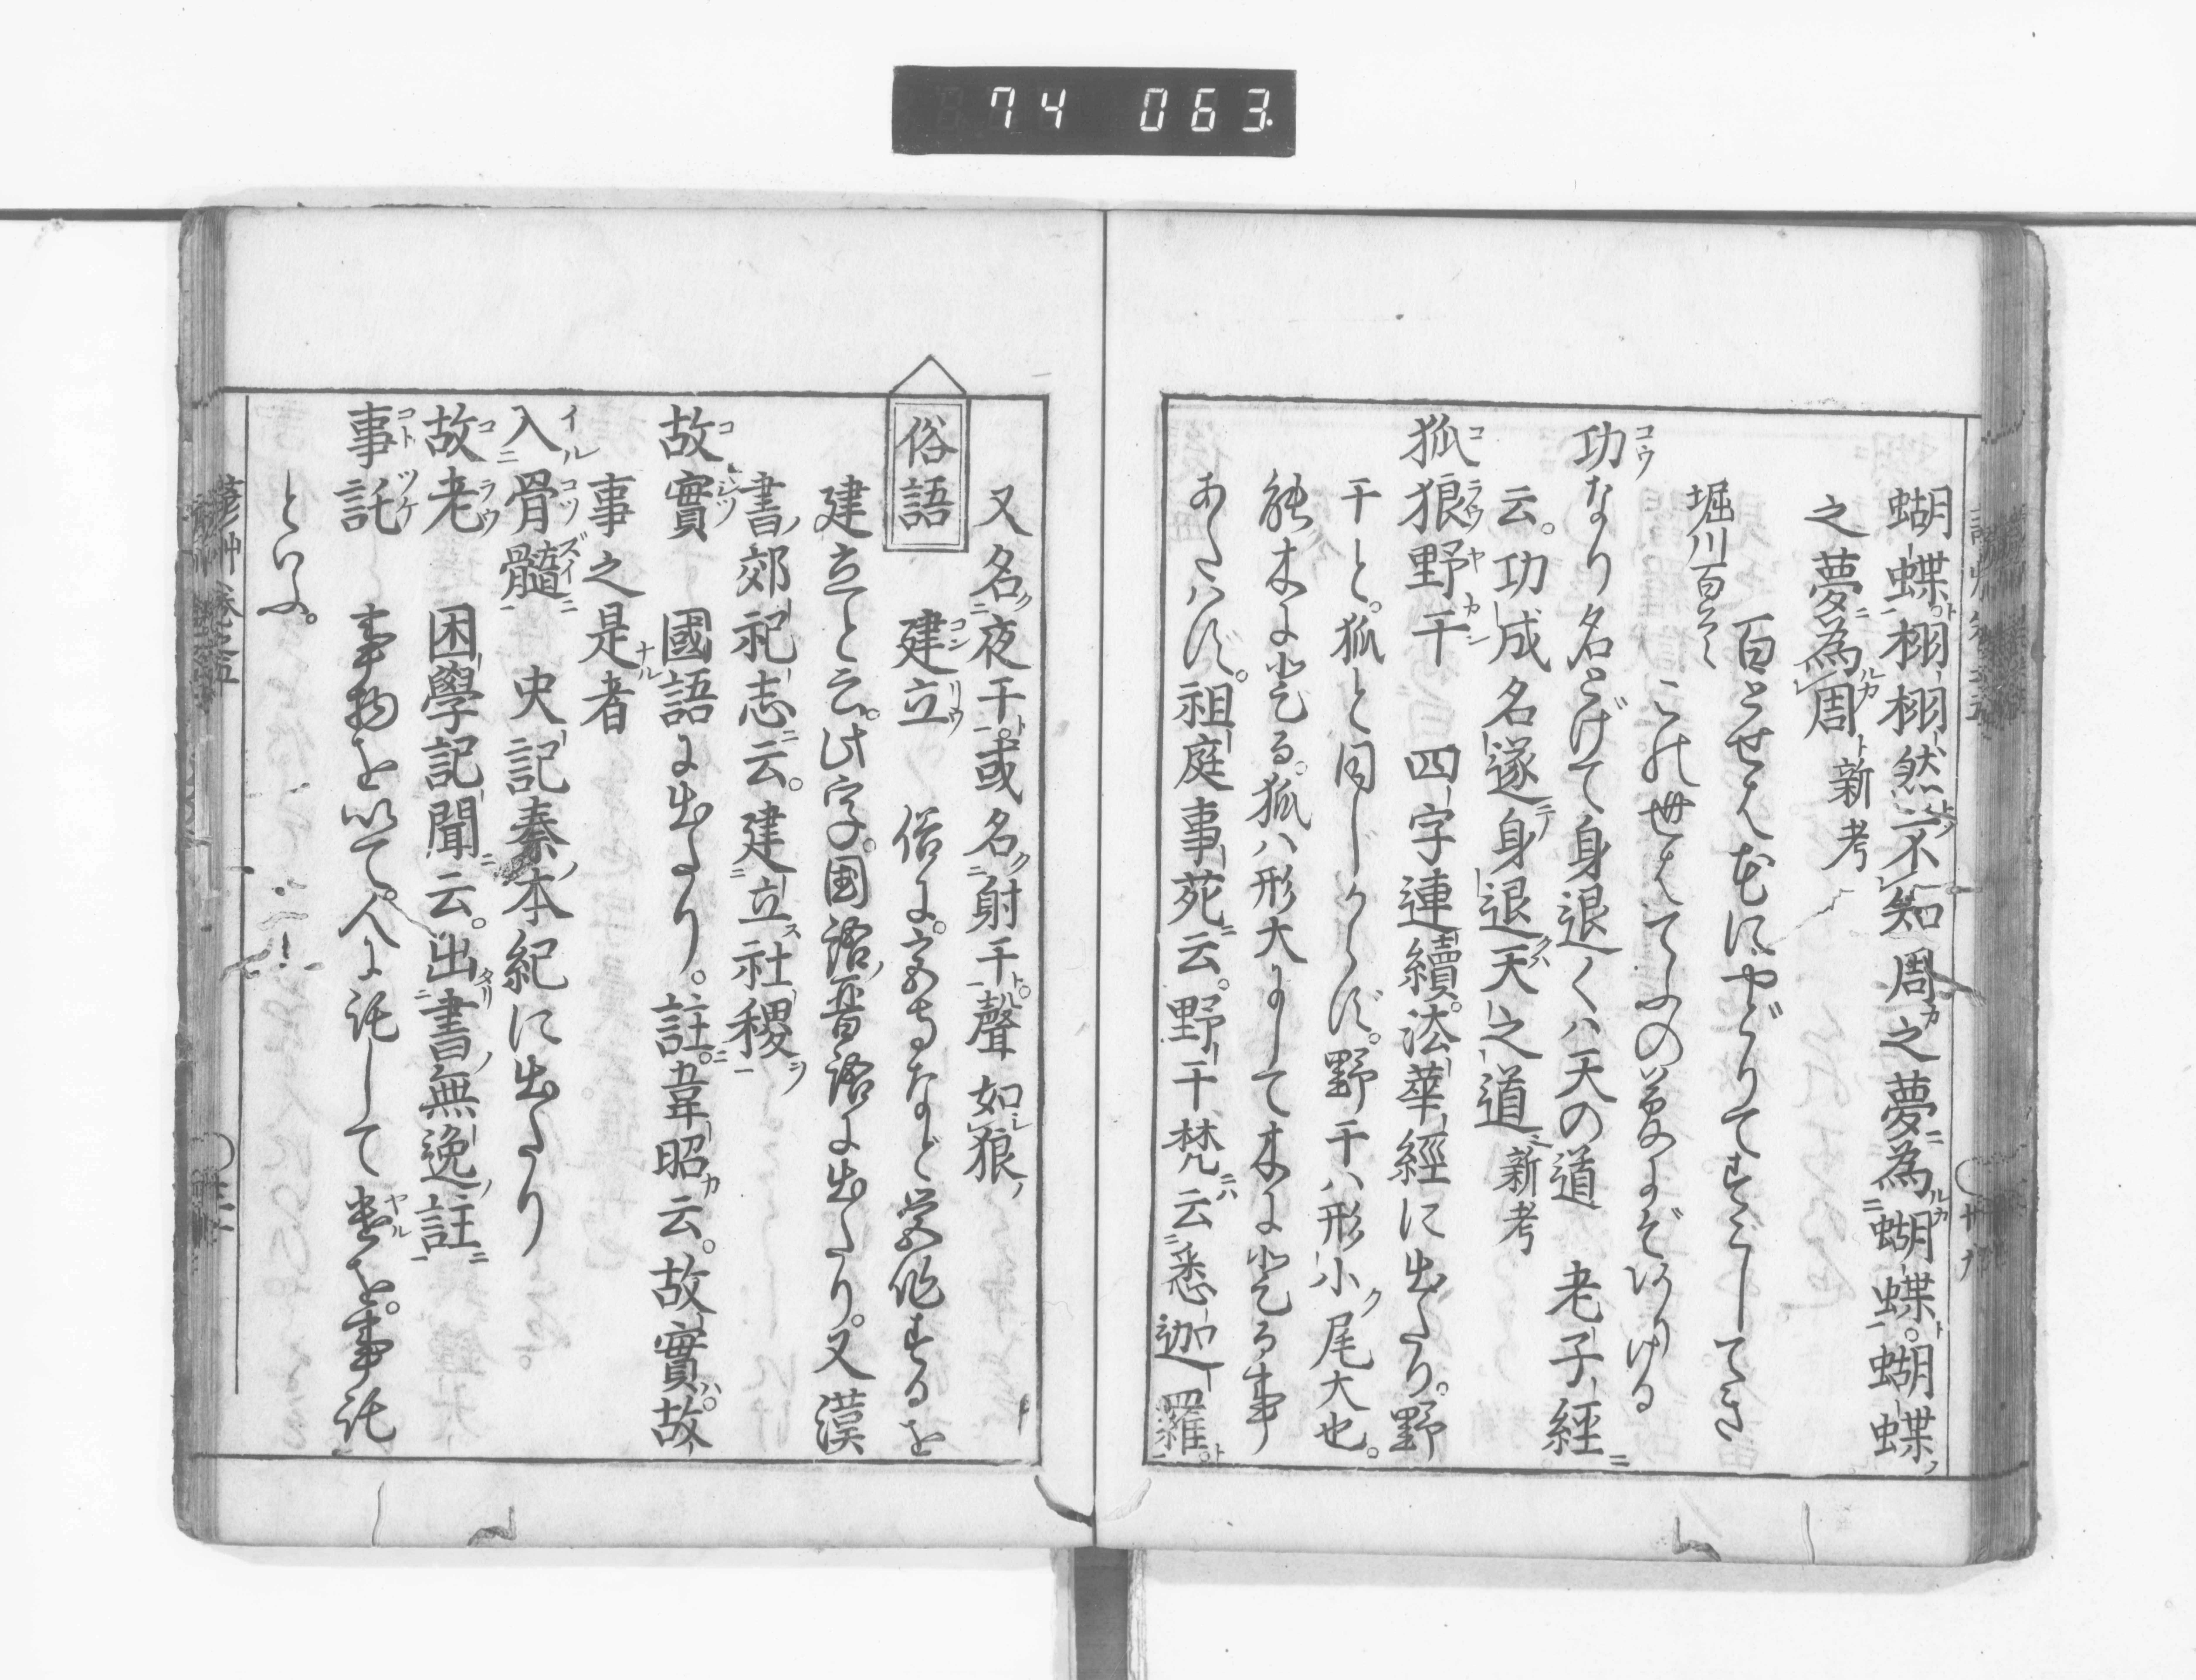 74 063
蝴蝶栩栩然不知周之夢為蝴蝶蝴蝶
之夢為周 新考
百とせは花にやどりてすぐしてき
堀川百首
この世はてふの夢にぞ有ける
功なり名とげて身退くハ天の道 老子經
云功成名遂身退天之道 新考
狐狼野干 四字連續法華經に出たり野
干と狐と同じからず野干ハ形小尾大也
能木に登る狐ハ形大にして木に登る事
あたハず祖庭事苑云野干梵云悉迦羅
又名夜干或名射干聲如狼
俗語 建立 俗に家などを營作するを
建立と云此字国語晋語に出たり又漢
書郊祀志云建立社稷
故實 國語に出たり註韋昭云故實故
事之是者
入骨髓 史記秦本紀に出たり
故老 困學記聞云出書無逸註
事託 事物を以て人に託して遣を事託
といふ